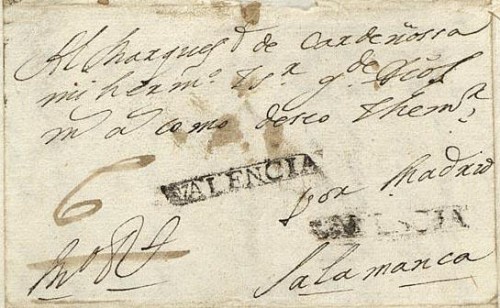 Al Marques de Cardeñossa
mi herm.º Sr g.de Dios
m a como deseo
6
VALENCIA
por Madrid
VALENCIA
Salamanca